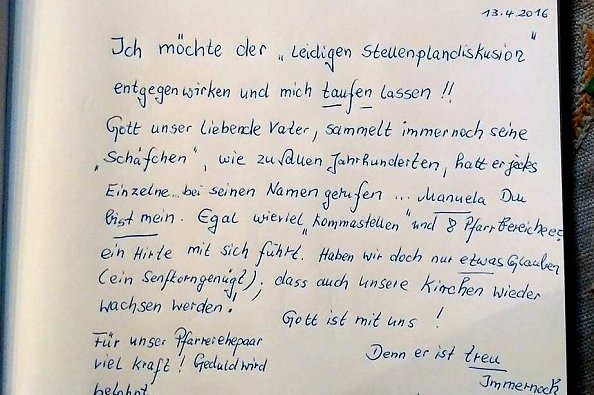 13.4.2016
Ich möchte der „Leidigen Stellenplandiskusion"
entgegenwirken und mich taufen lassen !!
Gott unser liebende Vater, sammelt immernoch seine
„Schäfchen", wie zu allen Jahrhunderten, hatt er jedes
Einzelne.. bei seinen Namen gerufen ... Manuela Du
bist mein. Egal wieviel „kommastellen" und 8 Pfarrbereiche:
ein Hirte mit sich führt. Haben wir doch nur etwas Glauben
(ein Senfkorn genügt); dass auch unsere Kirchen wieder
wachsen werden!
Gott ist mit uns !
Für unser Pfarrerehepaar
viel kraft! Geduld wird
belohnt
Denn er ist treu
Immernoch